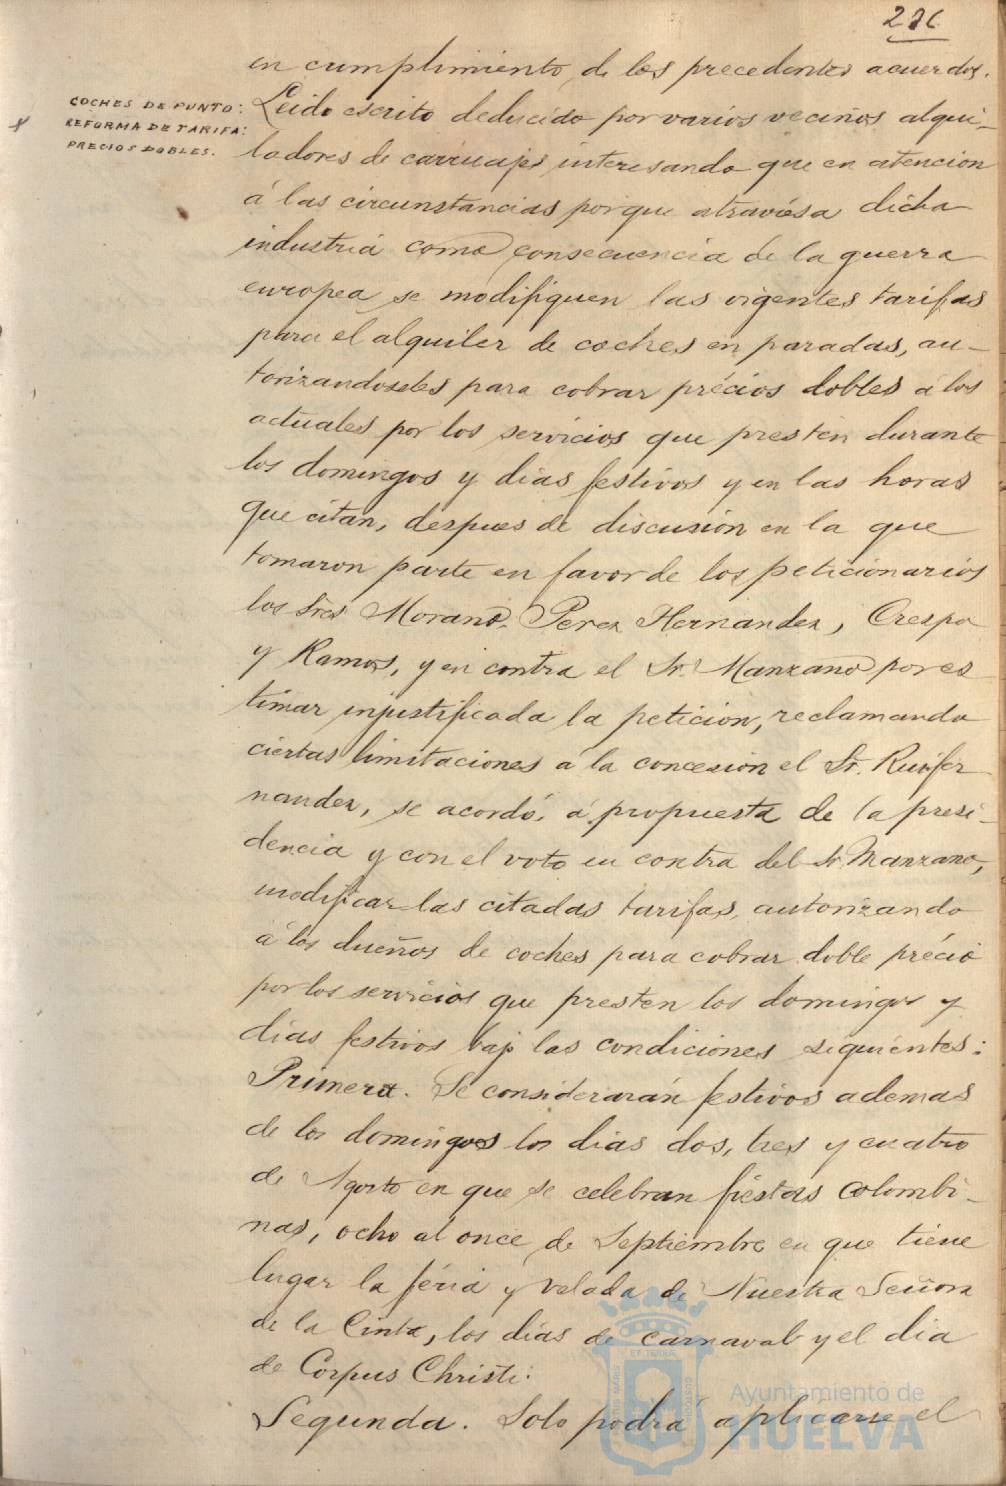 en cumplimiento de los precedentes acuerdos.
COCHES DE PUNTO:
REFORMA DE TARIFA:
PRECIOS DOBLES.
Leido escrito deducido por varios vecinos alqui-
ladores de carruajes interesando que en atencion
á las circunstancias porque atraviesa dicha
industria como consecuencia de la guerra
europea se modifiquen las vigentes tarifas
para el alquiler de coches en paradas, au-
torizandoseles para cobrar précios dobles á los
actuales por los servicios que presten durante
los domingos y dias festivos y en las horas
que citan, despues de discusión en la que
tomaron parte en favor de los peticionarios
los Sres Morano, Perez Hernandez, Crespo
y Ramos, y en contra el Sr. Manzano por es
timar injustificada la peticion, reclamando
ciertas limitaciones a la concesion el Sr. Ruifer
nandez, se acordó, á propuesta de la presi-
dencia y con el voto en contra del Sr Manzano,
modificar las citadas tarifas, autorizando
á los dueños de coches para cobrar doble précio
por los servicios que presten los domingos y
dias festivos bajo las condiciones siguientes:
Primera. Se considerarán festivos ademas
de los domingos los dias dos, tres y cuatro
de Agosto en que se celebran fiestas colombi-
nas, ocho al once de Septiembre en que tiene
lugar la féria y velada de Nuestra Señora
de la Cinta, los días de carnaval y el dia
de Corpus Christi:
Segunda. Solo podrá aplicarse el
Ayuntamiento de
HUELVA